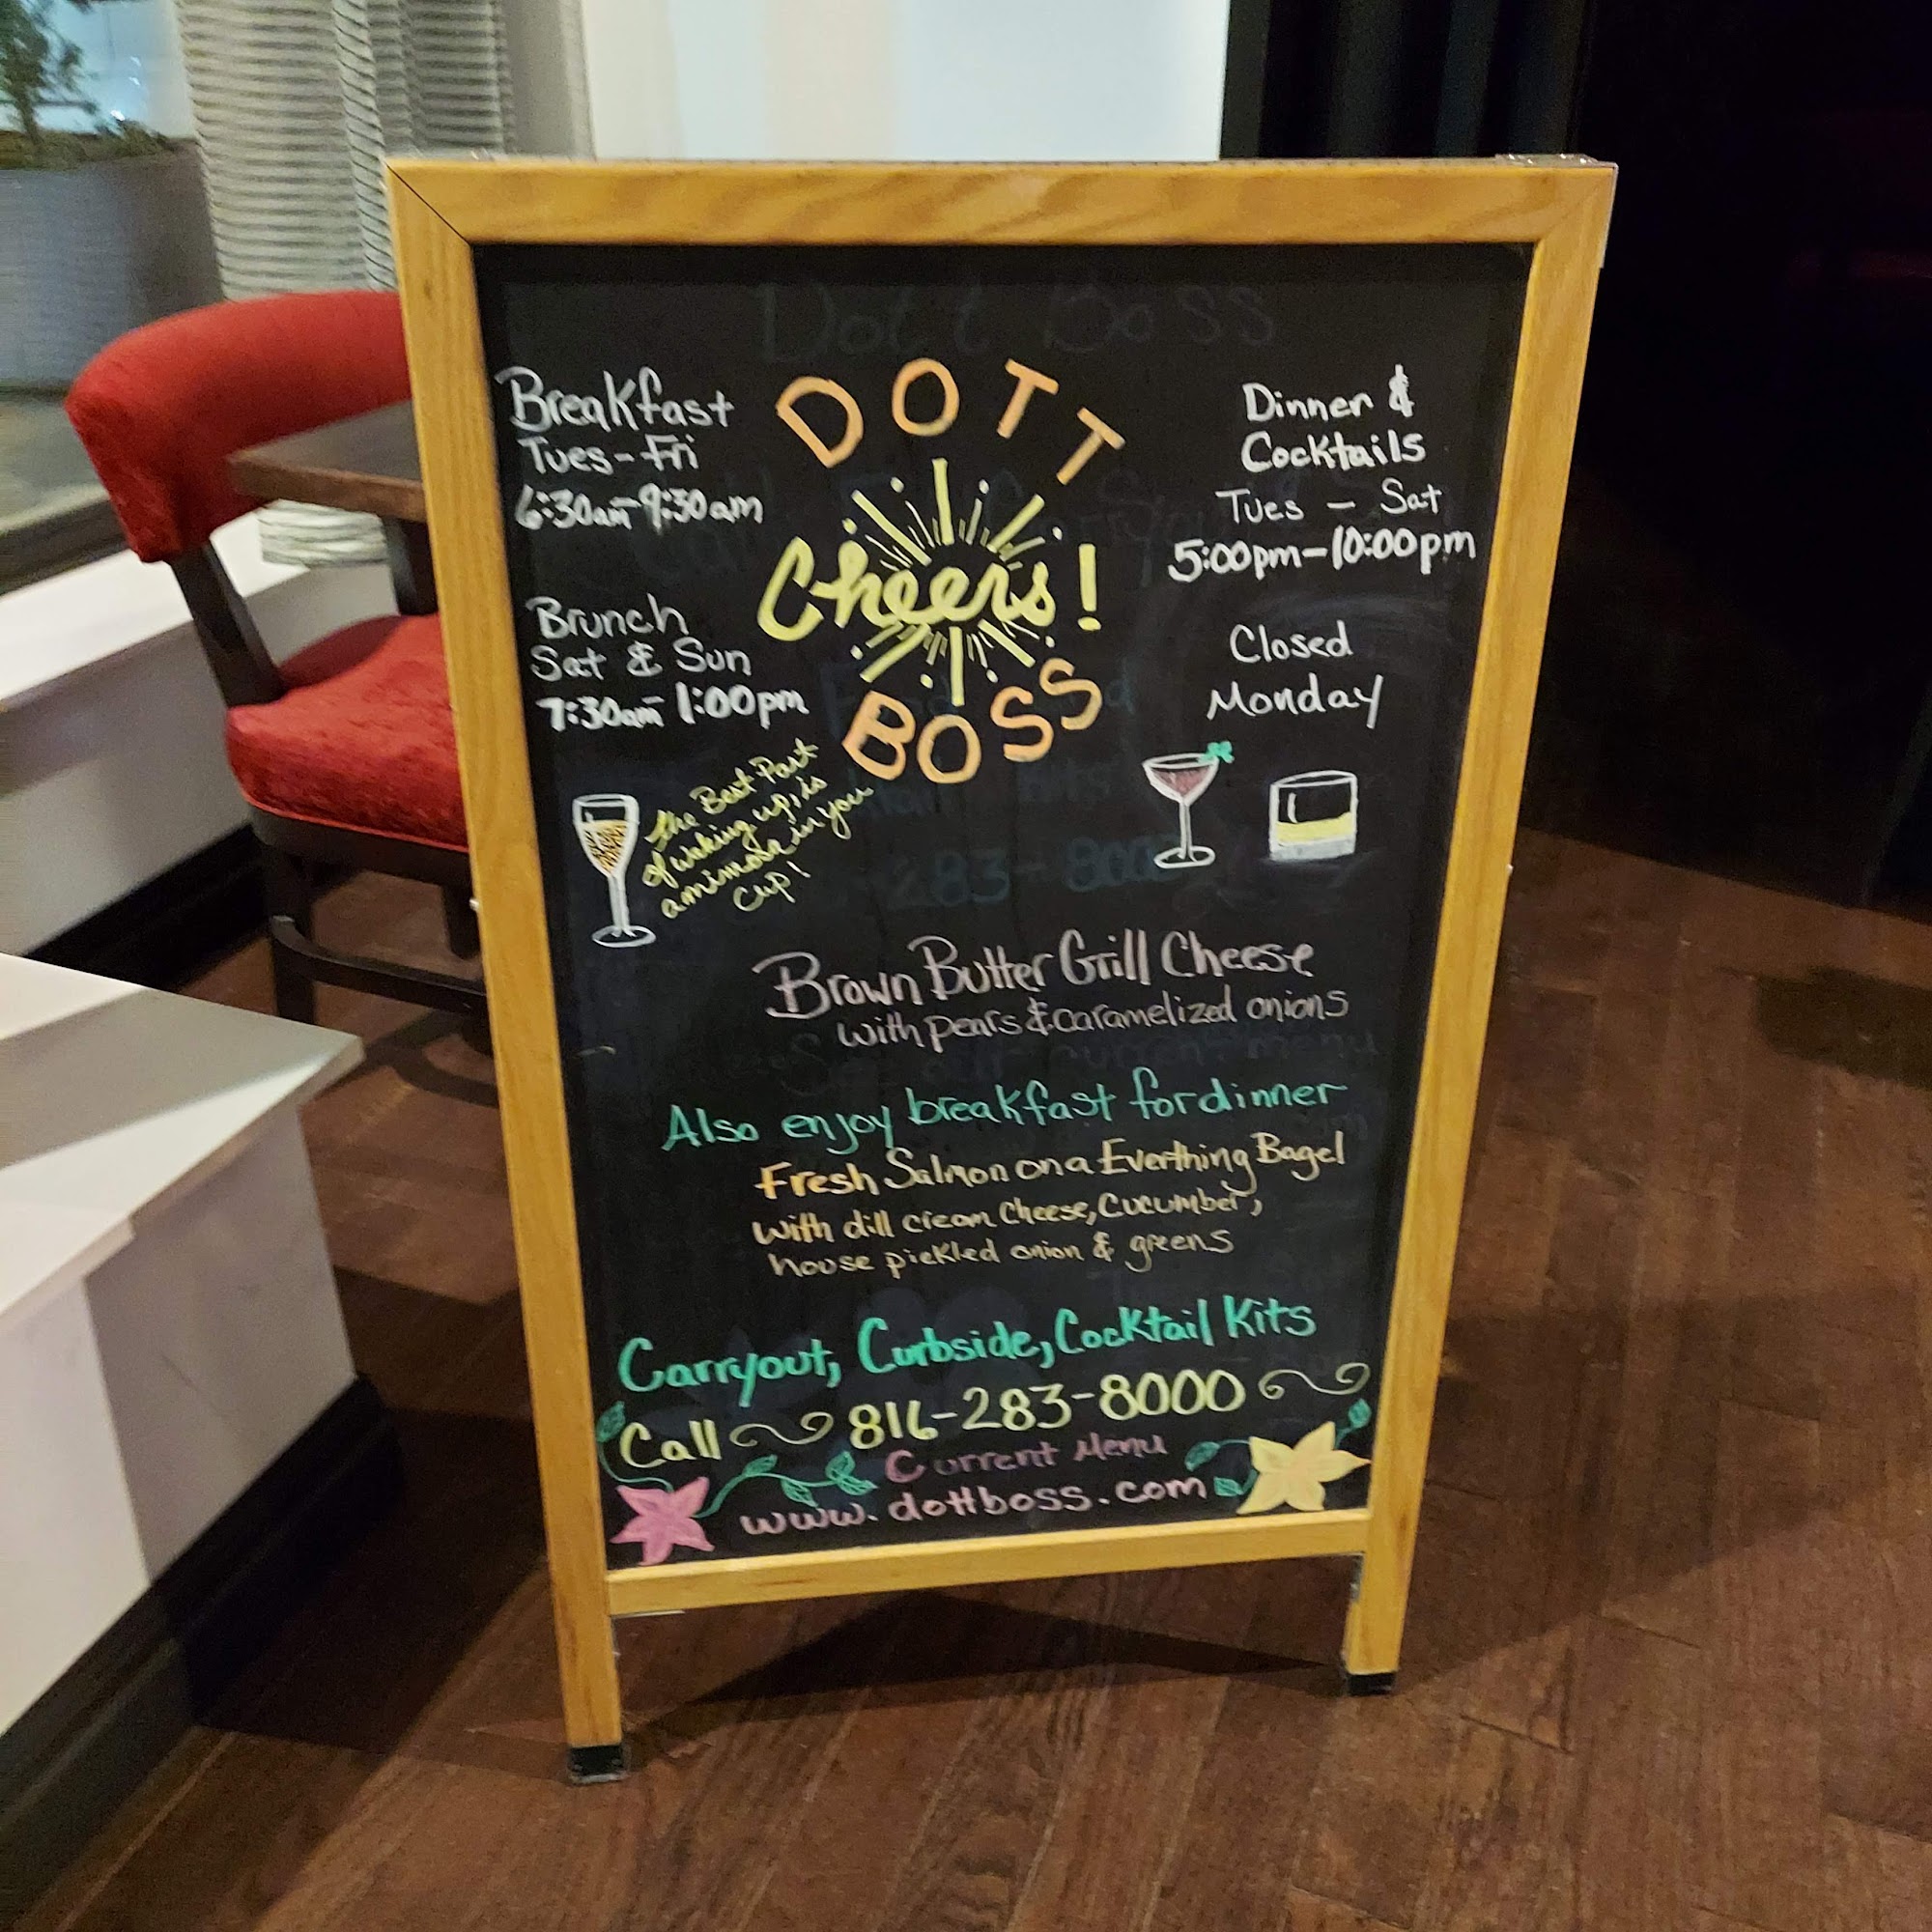 Dott Boss
Breakfast
Tues - Fri
6:30am - 9:30am
Brunch
Sat & Sun
7:30am - 1:00pm
DOTT
Cheers!
BOSS
Dinner &
Cocktails
Tues - Sat
5:00pm - 10:00pm
Closed
Monday
the Best Part
of waking up, is
a mimosa in you
cup!
283-8000
Brown Butter Grill Cheese
with pears & caramelized onions
current menu
Also enjoy breakfast for dinner
Fresh Salmon on a Everthing Bagel
with dill cream Cheese, Cucumber,
house pickled onion & greens
Carryout, Curbside, Cocktail Kits
Call 816-283-8000
Current Menu
www.dottboss.com